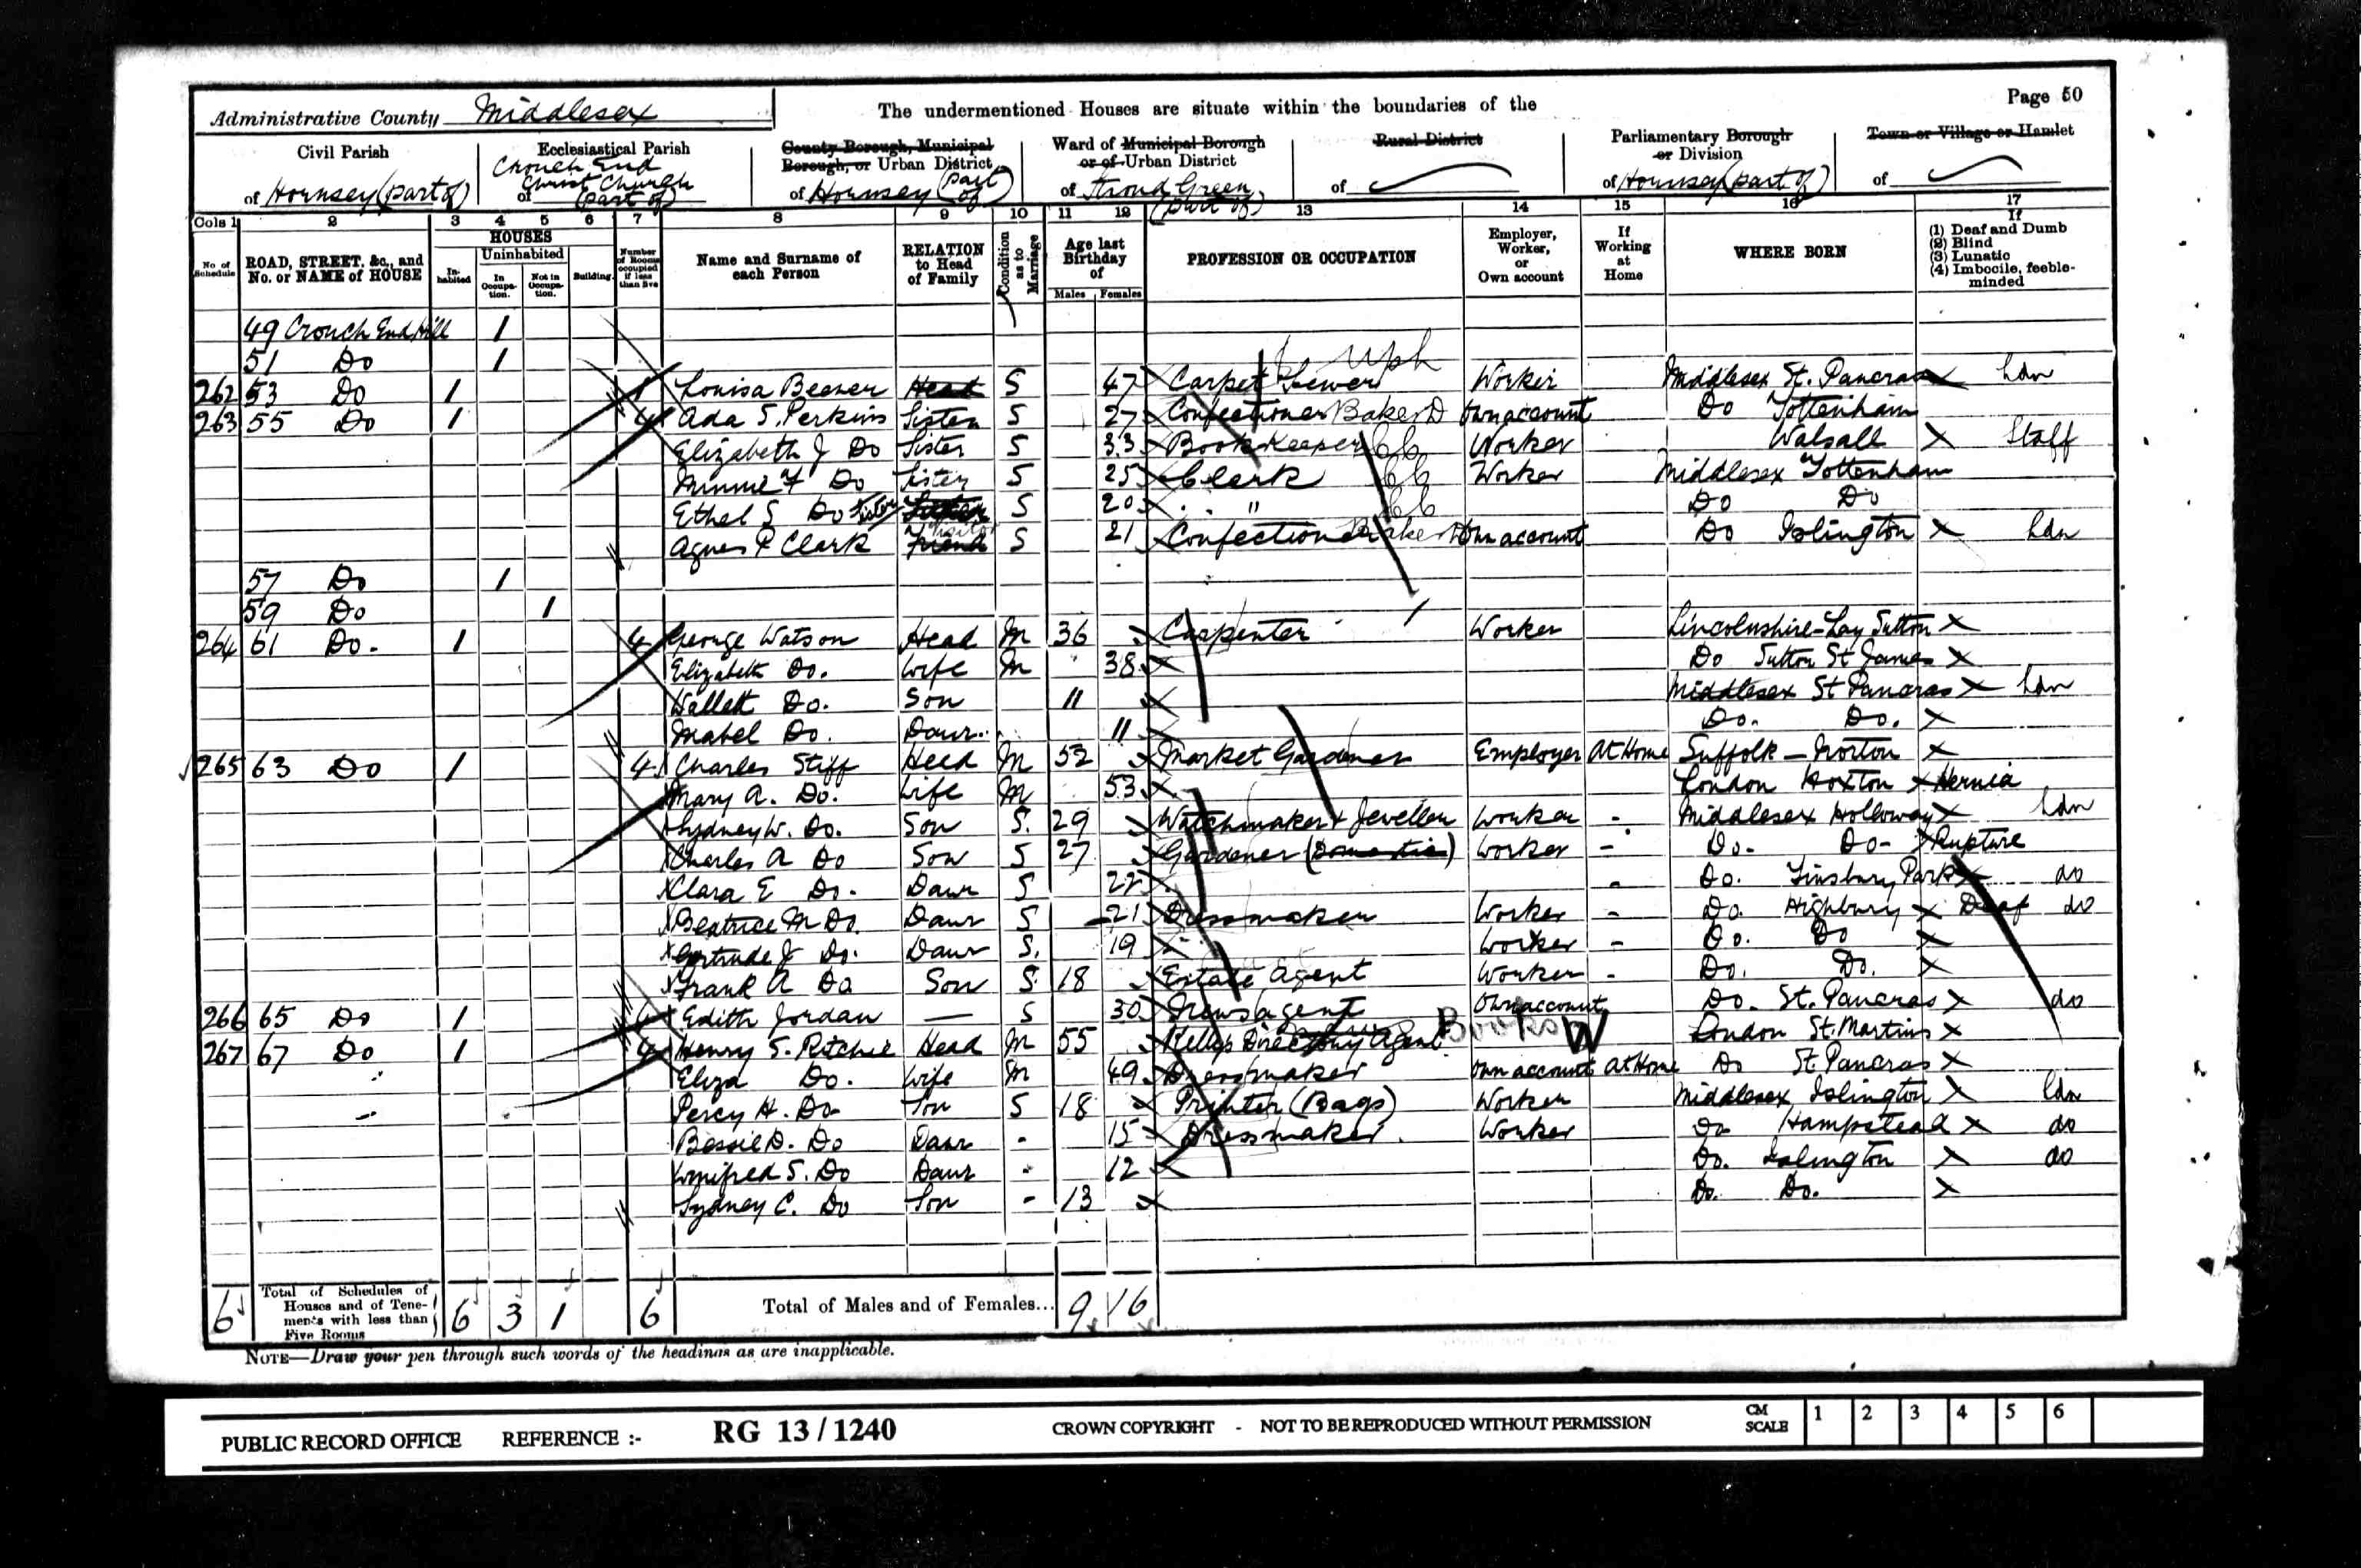 Administrative County Middlesex
The undermentioned Houses are situate within the boundaries of the
Page 50
Civil Parish
of Hornsey (part of)
Ecclesiastical Parish
of Crouch End Christ Church (part of)
County Borough, Municipal Borough, or Urban District
of Hornsey (part of)
Ward of Municipal Borough or of Urban District
of Stroud Green (part of)
Rural District
of
Parliamentary Borough or Division
of Hornsey (part of)
Town or Village or Hamlet
of
Cols 1 2 3 4 5 6 7 8 9 10 11 12 13 14 15 16 17
No of Schedule
ROAD, STREET, &c., and No. or NAME of HOUSE
HOUSES
Inhabited
Uninhabited
In Occupation.
Not in Occupation.
Building
Number of Rooms occupied if less than five
Name and Surname of each Person
RELATION to Head of Family
Condition as to Marriage
Age last Birthday of
Males Females
PROFESSION OR OCCUPATION
Employer, Worker, or Own account
If Working at Home
WHERE BORN
If
(1) Deaf and Dumb
(2) Blind
(3) Lunatic
(4) Imbecile, feeble-minded
49 Crouch End Hill 1
51 Do 1
262 53 Do 1 1 Louisa Beener Head S 47 Carpet Sewer Worker Middlesex St. Pancras Ldn
263 55 Do 1 4 Ada S. Perkins Sister S 27 Confectioner Baker D Own account Do Tottenham
Elizabeth J Do Sister S 33 Book Keeper Worker Walsall X Staff
Minnie F Do Sister S 25 Clerk Worker Middlesex Tottenham
Ethel S Do Sister S 20 " Do Do
Agnes P Clark Friend Visitor S 21 Confectioner Baker D Own account Do Islington X Ldn
57 Do 1
59 Do 1
264 61 Do. 1 4 George Watson Head M 36 Carpenter Worker Lincolnshire - Sutton X
Elizabeth Do. Wife M 38 Do Sutton St James X
Hallett Do. Son 11 Middlesex St Pancras X Ldn
Mabel Do. Daur. 11 Do. Do. X
265 63 Do 1 4 Charles Stiff Head M 52 Market Gardener Employer At Home Suffolk - Norton X
Mary A. Do. Wife M 53 London Hoxton X Hernia
Sydney W. Do. Son S. 29 Watchmaker & Jeweller Worker - Middlesex Holloway X Ldn
Charles A Do Son S 27 Gardener (Domestic) Worker - Do. Do- X Rupture
Clara E Do. Daur S 22 - Do. Finsbury Park X do
Beatrice M Do. Daur S 21 Dressmaker Worker - Do. Highbury X Deaf do
Gertrude J Do. Daur S. 19 Worker - Do. Do X
Frank A Do Son S. 18 Estate Agent Worker - Do. Do. X
266 65 Do 1 Edith Jordan — S 30 Newsagent Own account Do. St. Pancras X do
267 67 Do 1 4 Henry S. Ritchie Head M 55 Kellys Directory Agent Books W London St. Martins X
Eliza Do. Wife M 49 Dressmaker Own account At Home Do St Pancras X
Percy H. Do Son S 18 Printer (Bags) Worker Middlesex Islington X Ldn
Bessie D. Do Daur - 15 Dressmaker. Worker Do Hampstead X do
Winifred S. Do Daur - 12 Do. Islington X do
Sydney C. Do Son - 13 Do. Do. X
6 Total of Schedules of Houses and of Tenements with less than Five Rooms 6 3 1 6 Total of Males and of Females... 9 16
NOTE—Draw your pen through such words of the headings as are inapplicable.
PUBLIC RECORD OFFICE REFERENCE :- RG 13 / 1240 CROWN COPYRIGHT - NOT TO BE REPRODUCED WITHOUT PERMISSION CM SCALE 1 2 3 4 5 6